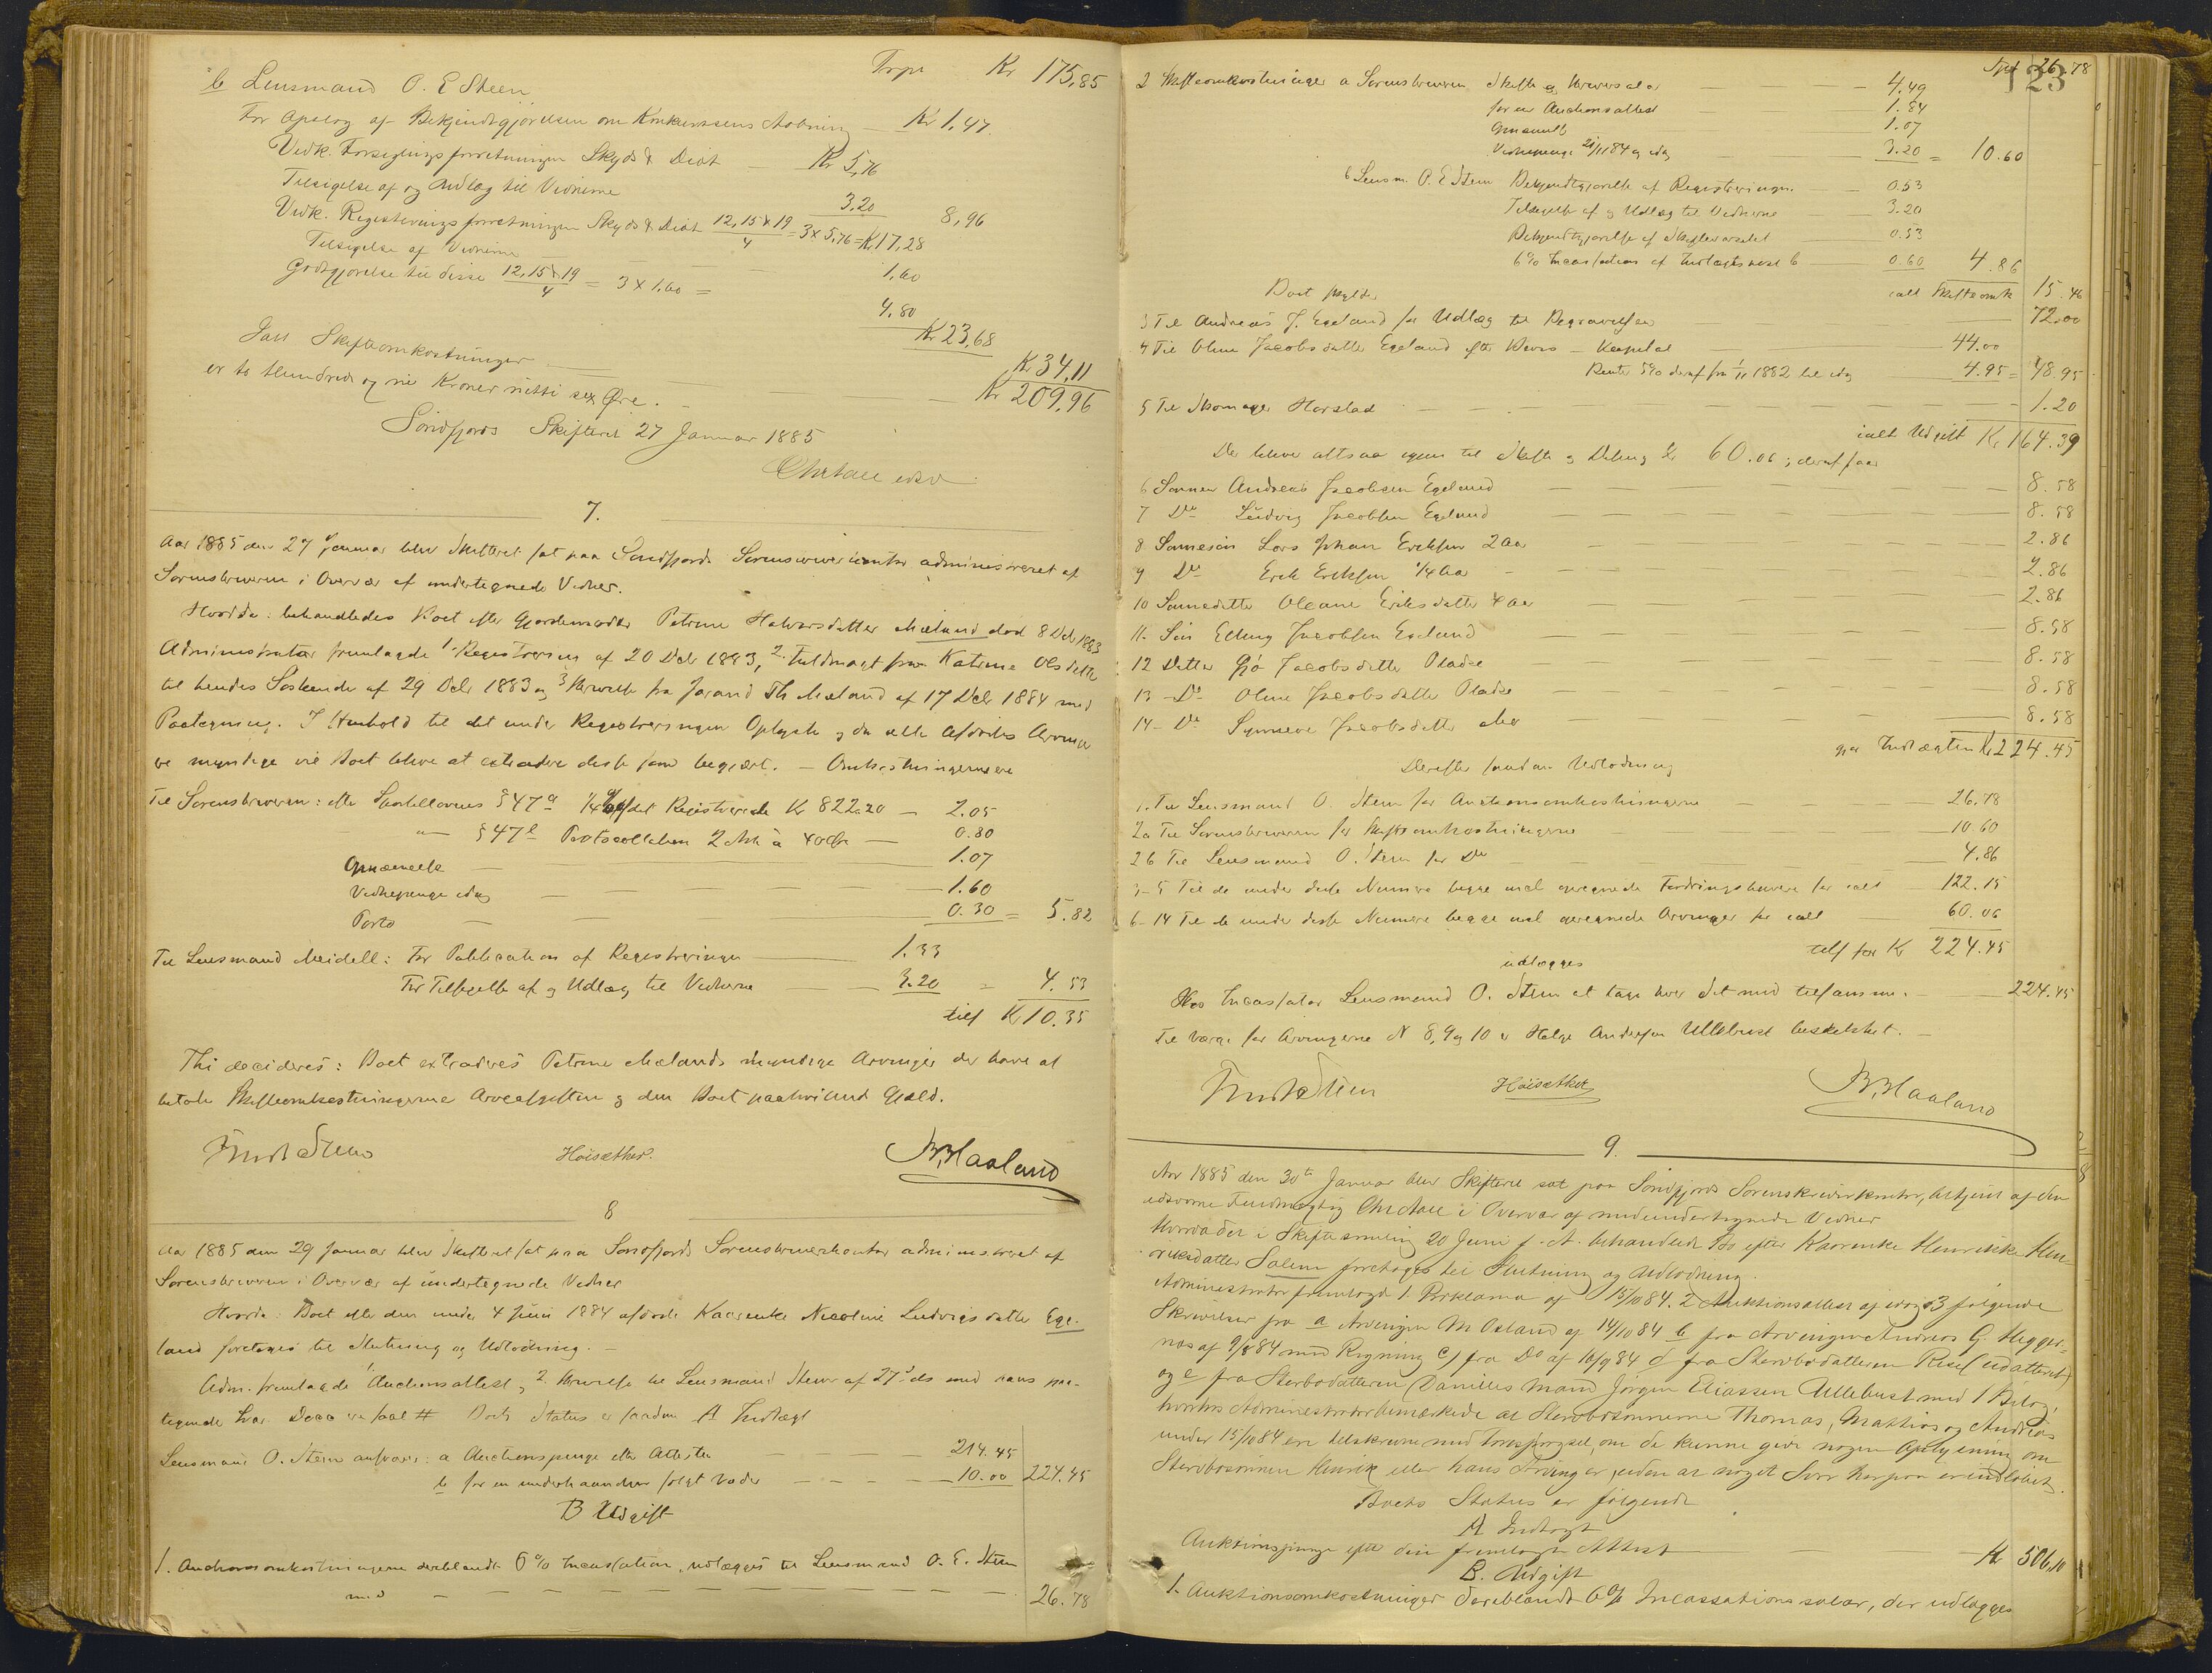 Trpt Kr 175,85
b Lensmand O. E Steen
For Opslag af Bekjendtgjørelsen om Konkursens Aabning — Kr 1,47
Vedk. Forseglingsforretningen Skyds & Diæt — Kr 5,76
Tilsigelse af og Udlæg til Vidnerne 3,20 8,96
Vedk. Registreringsforretningen Skyds & Diæt 12,15 & 19/4 = 3 x 5,76 = Kr 17,28
Tilsigelse af Vidnerne 1,60
Godtgjørelse til disse 12,15 & 19/4 = 3 x 1,60 = 4,80
Kr 23,68
Ialt Skifteomkostninger — Kr 34,11
Kr 209,96
er to Hundrede og ni Kroner nitti sex Øre.
Søndfjords Skifteret 27 Januar 1885
7.
Aar 1885 den 27 Januar blev Skifteret sat paa Søndfjords Sorenskriverkontor administreret af
Sorenskriveren i Overvær af undertegnede Vidner.
Hvorda: behandledes Boet efter Gjordemoder Petrine Halvorsdatter Mæland død 8 Dcbr 1883
Administrator fremlagde 1. Registrering af 20 Dcbr 1883, 2. Fuldmagt fra Katrine Olsdatter
til hendes Søskende af 29 Dcbr 1883 og 3 Skrivelse fra Jarand Th Mæland af 17 Dcbr 1884 med
Paategning. I Henhold til det under Registreringen Oplyste og da alle Afdødes Arvinger
ere myndige vil Boet blive at extradere disse som begjært. — Omkostningerne ere
Til Sorenskriveren: efter Sportellovens § 47 a 1/4 % af det Registrerede Kr 822.20 — 2.05
— " — § 47 l Protocollation 2 Ark à 40 Øre — 0.80
Gjenne 1.07
Vidnepenge idag — 1.60
Porto — 0.30 = 5.82
Til Lensmand Meidell: For Publication af Registreringen — 1.33
For Tilsigelse af og Udlæg til Vidnerne — 3.20 = 4.53
tils Kr 10.35
Thi decideres: Boet extraderes Petrine Mælands myndige Arvinger der have at
betale Skifteomkostningerne Arveafgiften og den Boet paahvilende Gjæld.
Knut Steen Høisæther. B. Haaland
8
Aar 1885 den 29 Januar blev Skifteret sat paa Søndfjords Sorenskriverkontor administreret af
Sorenskriveren i Overvær af undertegnede Vidner
Hvorda: Boet efter den under 4 Juni 1884 afdøde Kaarenke Nicoline Ludvigsdatter Ege-
land foretoges til Slutning og Udlodning. —
Adm. fremlagde 1. Auctionsattest, 2. Skrivelse til Lensmand Steen af 27 ds med hans paa-
tegnede Svar. Boets Status er saadan A Indtægt
Lensmand O. Steen ansvarer: a Auctionspenge efter Attesten — 214.45
b for en underhaanden solgt 10.00 224.45
B Udgift
1. Auctionsomkostningerne deriblandt 6 % Incassation, udlægges til Lensmand O. E. Steen
med — 26.78
123
Trpt 26.78
2 Skifteomkostninger a Sorenskriveren Skifte og Skriversalær — 4.49
for en Auctionsattest 1.84
1.07
Vidnepenge 21/11 84 og idag 3.20 = 10.60
b Lensm. O. E Steen Bekjendtgjørelse af Registreringen — 0.53
Tilsigelse af og Udlæg til Vidnerne — 3.20
Bekjendtgjørelse af Skiftevarslet — 0.53
6 % Incassation af Indtægtspost b — 0.60 4.86
ialt Skifteomk 15.46
Boet skylder
3 Til Andreas J. Egeland for Udlæg til Begravelsen — 72.00
4 Til Oline Jacobsdatter Egeland efter Bevis — Kapital — 44.00
Renter 5 % deraf fra 1/11 1882 til idag — 4.95 = 48.95
5 Til Skomager Harstad — 1.20
ialt Udgift Kr 164.39
Der bliver altsaa igjen til Skifte og Deling Kr 60.06; deraf faar
6 Sønnen Andreas Jacobsen Egeland — 8.58
7 Do Ludvig Jacobsen Egeland — 8.58
8 Sønnesøn Lars Johan Eriksen 2 Aar — 2.86
9 Do Erik Eriksen 1/4 Aar — 2.86
10 Sønnedatter Oleane Eriksdatter 4 Aar — 2.86
11. Søn Elling Jacobsen Egeland — 8.58
12 Datter Jacobsdatter — 8.58
13 — Do Oline Jacobsdatter — 8.58
14 — Do Synneve Jacobsdatter — 8.58
gjør Indtægten Kr 224.45
Derefter saadan Udlodning
1. Til Lensmand O. Steen for Auctionsomkostningerne — 26.78
2a Til Sorenskriveren for Skifteomkostningerne — 10.60
2b Til Lensmand O. Steen for Do — 4.86
3–5 Til de under disse Numere begge incl opregnede Fordringshavere for ialt — 122.15
6–14 Til de under disse Numere begge incl opregnede Arvinger for ialt 60.06
tils for Kr 224.45
udlægges
Hos Incassator Lensmand O. Steen at tage hver Sit med tilsammen. — 224.45
Til Værge for Arvingerne N 8, 9 og 10 er Helge Andersen Ullebust beskikket. —
Knut Steen Høisæther B. Haaland
9.
Aar 1885 den 30te Januar blev Skifteret sat paa Søndfjords Sorenskriverkontor, betjent af den
edsvorne Fuldmægtig i Overvær af medundertegnede Vidner
Hvorda den i Skiftesamling 20 Juni f. A. behandlede Bo efter Kaarenke Henrikke Hen-
riksdatter Solem foretoges til Slutning og Udlodning.
Administrator fremlagde 1. Proklama af 15/10 84. 2 Auktionsattest af idag 3 følgende
Skrivelser fra a Arvingen M Osland af 14/10 84 b fra Arvingen Andreas G. Hegge-
næs af 9/8 84 med Regning c) fra Do af 16/9 84 d fra Stervbodatteren
og e fra Stervbodatteren Danielis Mand Jørgen Eliassen Ullebust med 1 Bilag,
hvorhos Administrator bemærkede at Stervbosønnerne Thomas, Mathias og Andreas
under 15/10 84 ere tilskrevne med Forespørgsel, om de kunne give nogen Oplysning om
Stervbosønnen Henrik eller hans Arvinger, uden at noget Svar herpaa er indløbet.
Boets Status er følgende
A Indtægt
Auktionspenge efter den fremlagte Attest — Kr 506,10
B. Udgift
1. Auktionsomkostninger deriblandt 6 % Incassationssalær, der udlægges